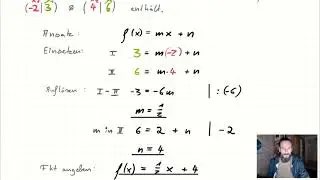 (-2|3) & (4|6) enthält.
Ansatz: f(x) = mx + n
Einsetzen: I 3 = m(-2) + n
II 6 = m·4 + n
Auflösen: I-II -3 = -6m | :(-6)
m = 1/2
m in II 6 = 2 + n | -2
n = 4
Fkt angeben: f(x) = 1/2 x + 4